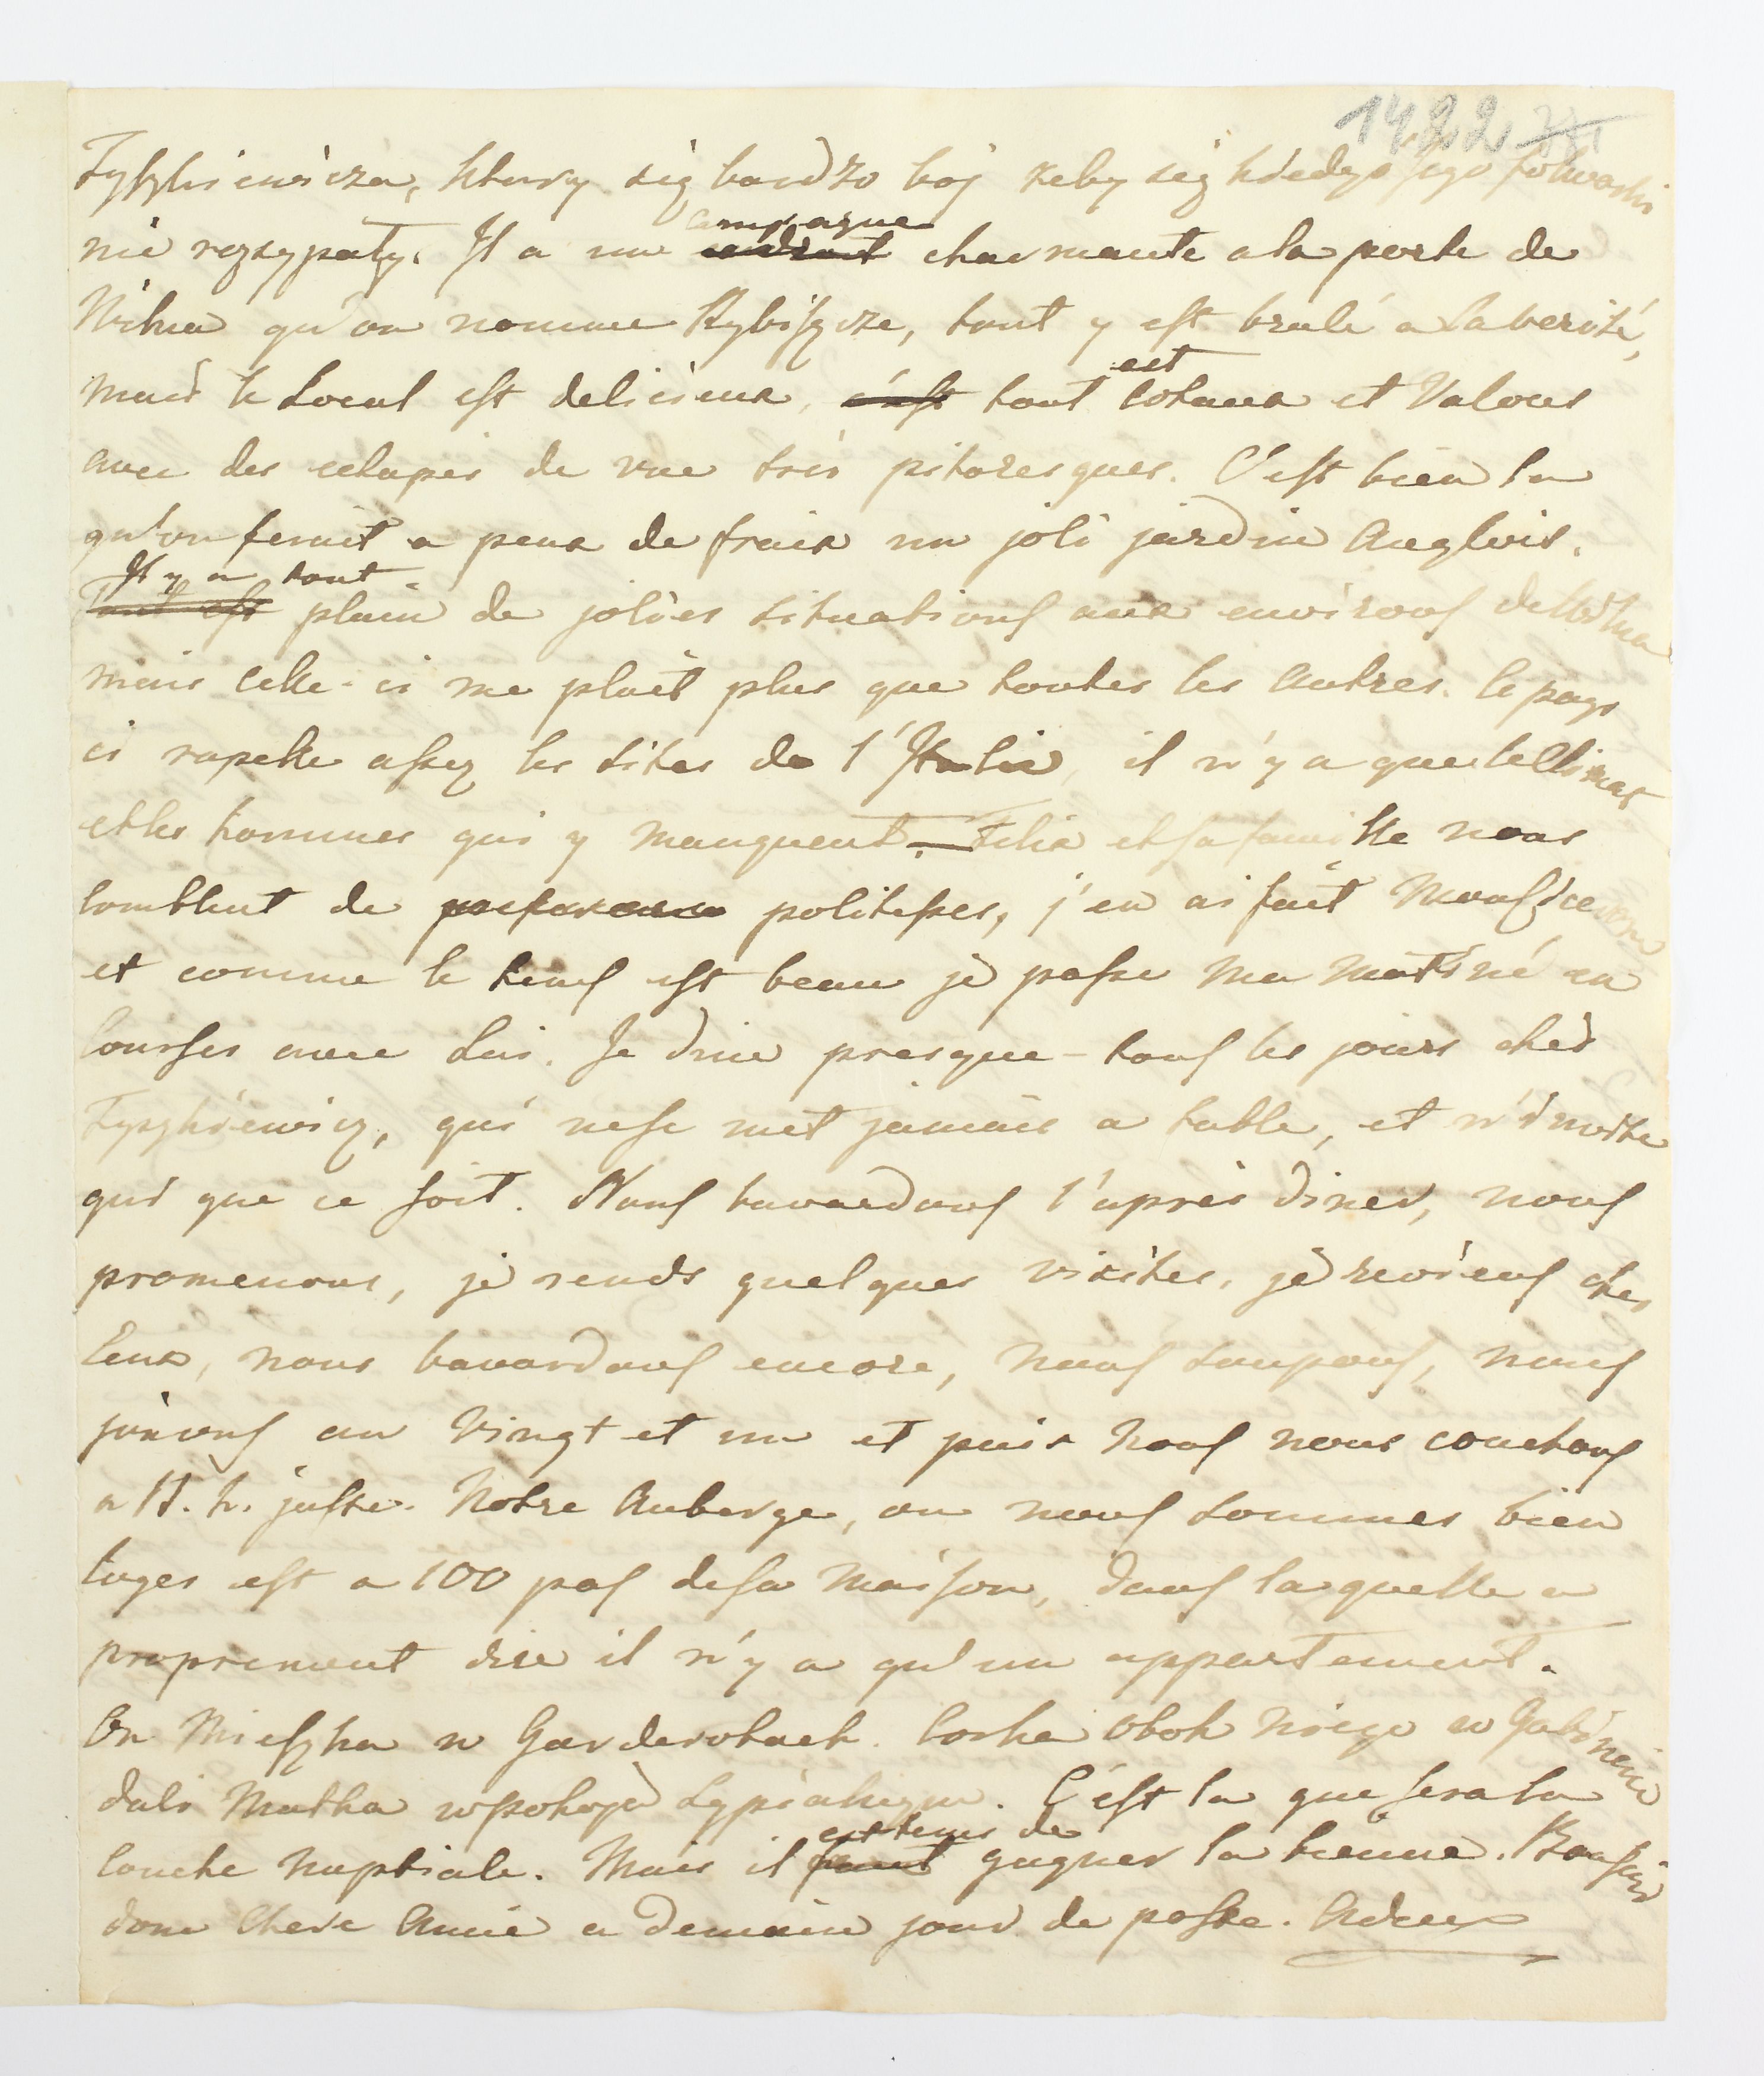 1422
Tyszkiewicza, ktury się bardzo boj żeby się kiedys jego folwarki
nie rozsypały. Il a une campagne charmante a la porte de
Wilna qu'on nomme Rybiszcze, tout y est brulé a la verité,
mais le Local est delicieux, tout est Coteaux et Valons
avec des echapés de vue très pitoresques. C'est bien la
qu'on feroit a peux de fraix un joli jardin Anglois.
Il y a tout plain de jolies situations aux environs de Wilna
mais Celle-ci me plait plus que toutes les Autres. Ce pays
ci rapelle assez les Sites de l'Italie, il n'y a que le Climat
et les hommes qui y manquent. Felix et sa famille nous
Comblent de politesses, j'en ai fait
et comme le tems est beau je passe Ma Matiné en
Courses avec Lui. Je dine presque-tous les jours chès
Tyszkiewicz, qui ne se met jamais a table, et n'invite
qui que ce soit. Nous bavardons l'après diner, nous
promenons, je rends quelques visites, je reviens chés
Eux, nous bavardons encore, nous Soupons, nous
jouons au Vingt et un et puis Nous nous couchons
a 11. h. juste. Notre Auberge, ou nous Sommes bien
Loges est a 100 pas de sa Maison, dans laquelle a
proprement dire il n'y a qu'un appartement.
On Mieszka w Garderobach. Corka Obok Niego w Gabinecie
dali Matka w pokoju Sypialnym. C'est la que sera la
Couche Nuptiale. Mais il est tems de gagner la tienne. Bonsoir
donc Chere Amie a demain jour de poste. Adieu